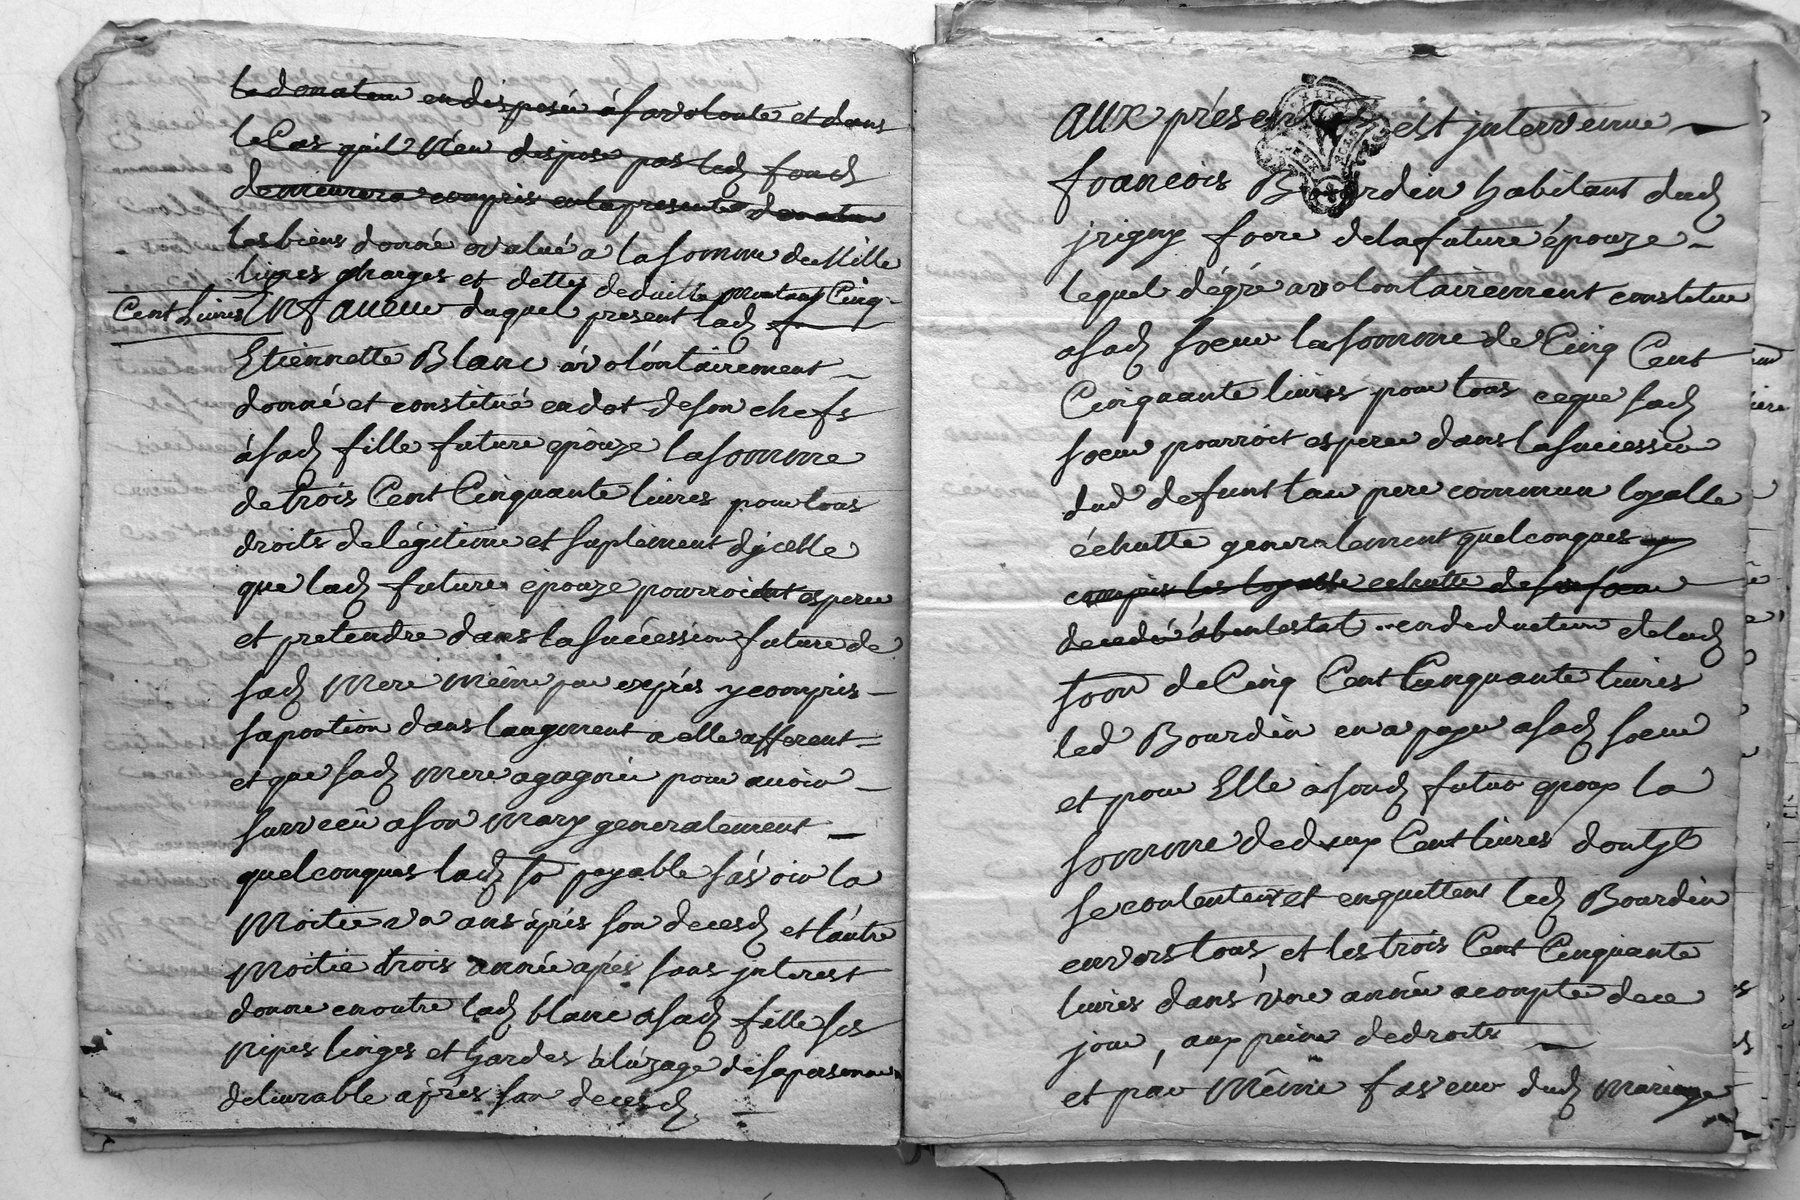 le donateur en disposér á sa volonte et dans
le Cas quil N'en dispose pas led fonds
demeurera compris en la presente donation
les biens donné evalué a la somme de Mille
livres charges et dettes deduitte montant Cinq
Cent Livres En faveur duquel present lad
Etiennette Blanc a volontairement
donné et constitué en dot de son chefs
á sad fille future epouze la somme
de trois Cent Cinquante livres pour tous
droits de légitime et suplément d'jcelle
que lad future épouze pourroit esperer
et pretendre dans la succession future de
sad Mere Même par exprés y compris
sa portion dans laugment a elle afferent
et que sad Mere a gagnée pour avoir
survecû a son Mary generalement
quelconques lad so payable sávoir la
Moitié vn ans áprés son decesd et l'autre
Moitié trois année aprés sans jnterest
donne en outre lad blanc a sad fille ses
Nipes linges et hardes á l'uzage de sa personne
delivrable áprés son decesd
aux présentes est jntervenue
francois Bourdin habitant dud
jrigny frere de la future épouze
lequel dégré a volontairement constitue
a sad soeur la somme de Cinq Cent
Cinquante livres pour tous ce que sad
soeur pourroit esperer dans la succession
dud defunt leur pere commun loyalle
échutte generalement quelconques
compris les loyalle echutte de son soeur
decedée ab intestat en deduction de lad
som de Cinq Cent Cinquante livres
led Bourdin en a payé a sad soeur
et pour Elle á sond futur epoux la
somme de deux Cent livres dont jl
se contentent et en quittent led Bourdin
envers tous et les trois Cent Cinquante
livres dans vne année a compter de ce
jour, aux peine de droits
et par Même faveur dud Mariage